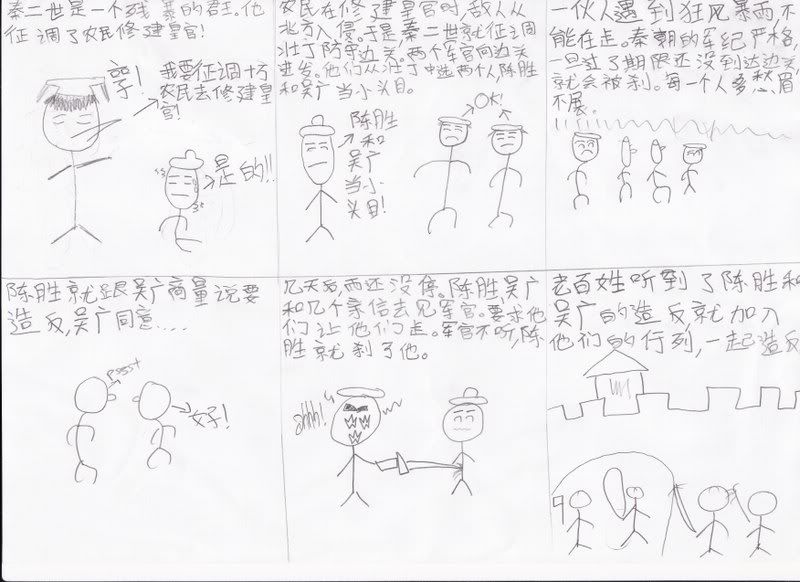 秦二世是一个残暴的君王。他
征调了农民修建皇官!
哼!
我要征调十方
农民去修建皇
官!
是的!!
农民在修建皇官时,敌人从
北方入侵。于是,秦二世就征调
壮丁防守边关。两个军官向边关
进发。他们从壮丁中选两个人陈胜
和吴广当小头目。
陈胜
和
吴广
当小
头目!
OK!
一伙人遇到狂风暴雨,不
能在走。秦朝的军纪严格,
一旦过了期限还没到达边关,
就会被刹。每一个人多愁眉
不展。
陈胜就跟吴广商量说要
造反,吴广同意....
psst
好!
几天后,雨还没停。陈胜,吴广
和几个亲信去见军官。要求他
们让他们走。军官不听,陈
胜就刹了他。
ahhh!
老百姓听到了陈胜和
吴广的造反就加入
他们的行列,一起造反